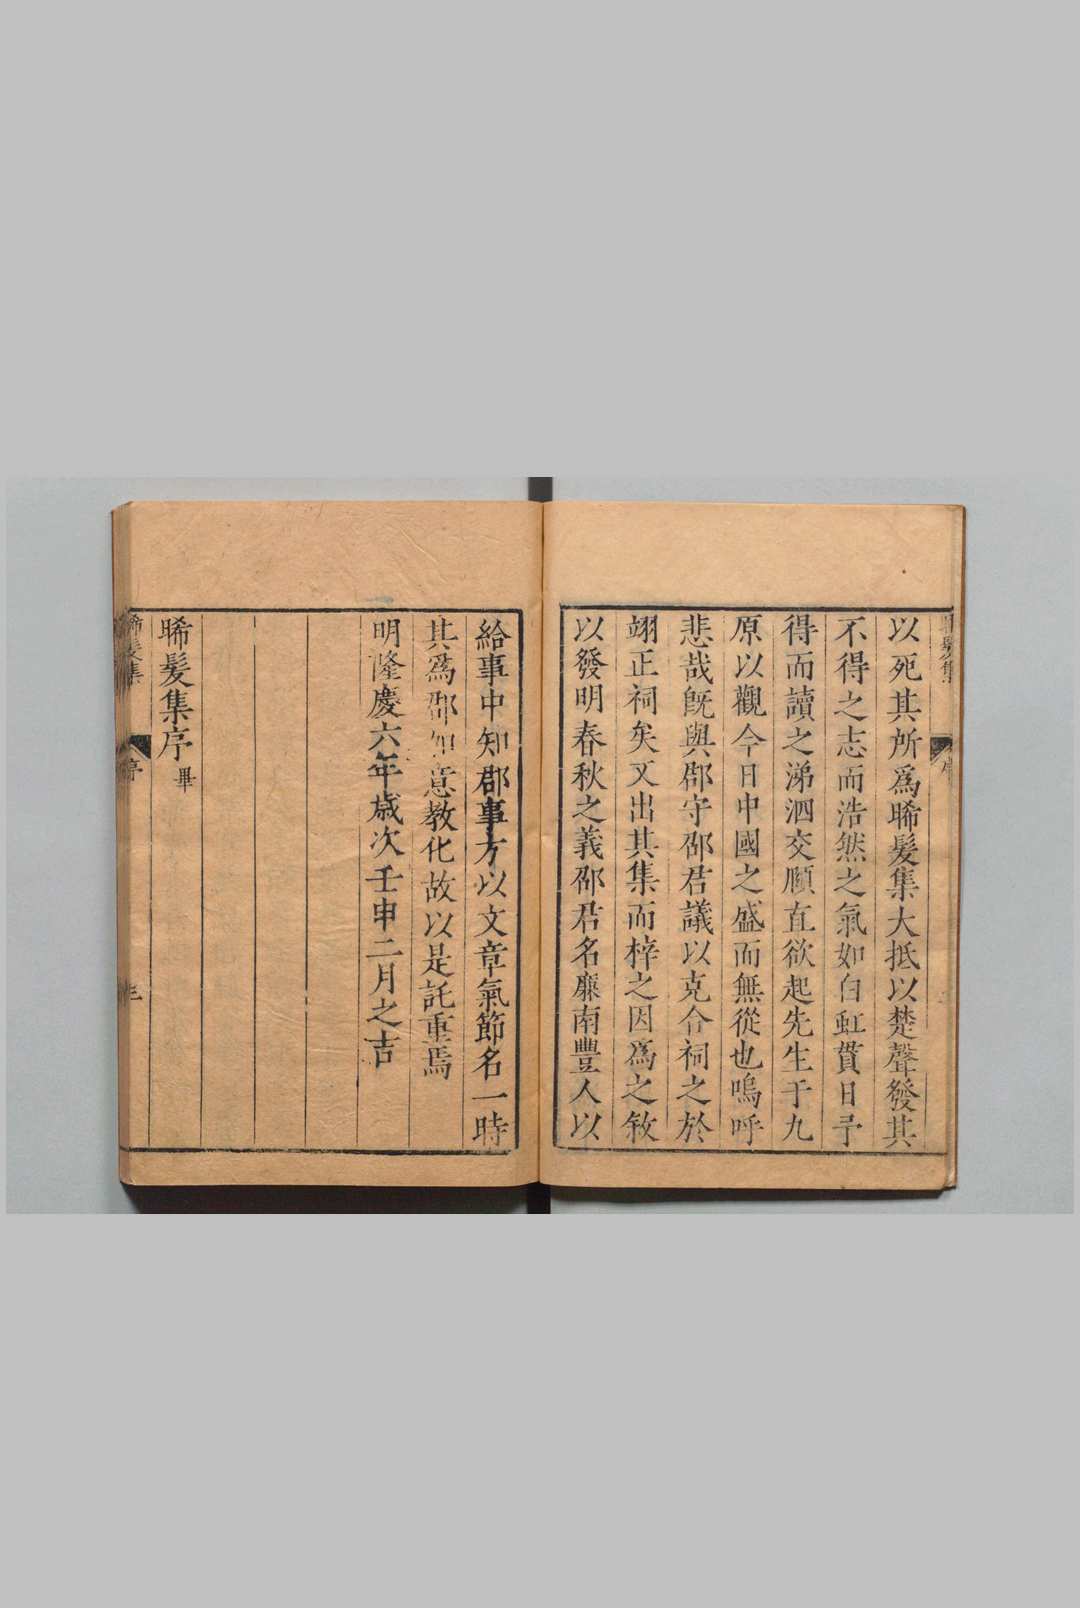 以死其所爲晞髮集大抵以楚聲發其
不得之志而浩然之氣如白虹貫日予
得而讀之涕泗交頤直欲起先生于九
原以觀今日中國之盛而無從也嗚呼
悲哉旣與郡守邵君議以克合祠之於
翊正祠矣又出其集而梓之因爲之敘
以發明春秋之義邵君名廉南豐人以
給事中知郡事方以文章氣節名一時
其爲郡如意教化故以是託重焉
明隆慶六年歲次壬申二月之吉
晞髮集序畢
晞髮集
序
三